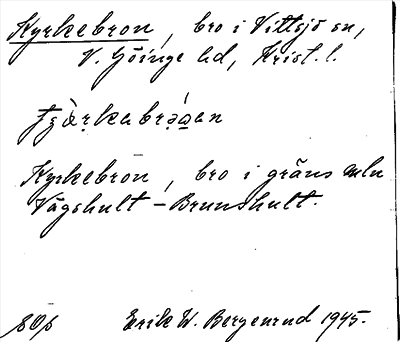 Kyrkebron, bro i Vittsjö sn,
V. Göinge hd, Krist. l.
Kyrkebron, bro i gräns mln
Vågshult – Brunshult.
Erik W. Bergenrud 1945.